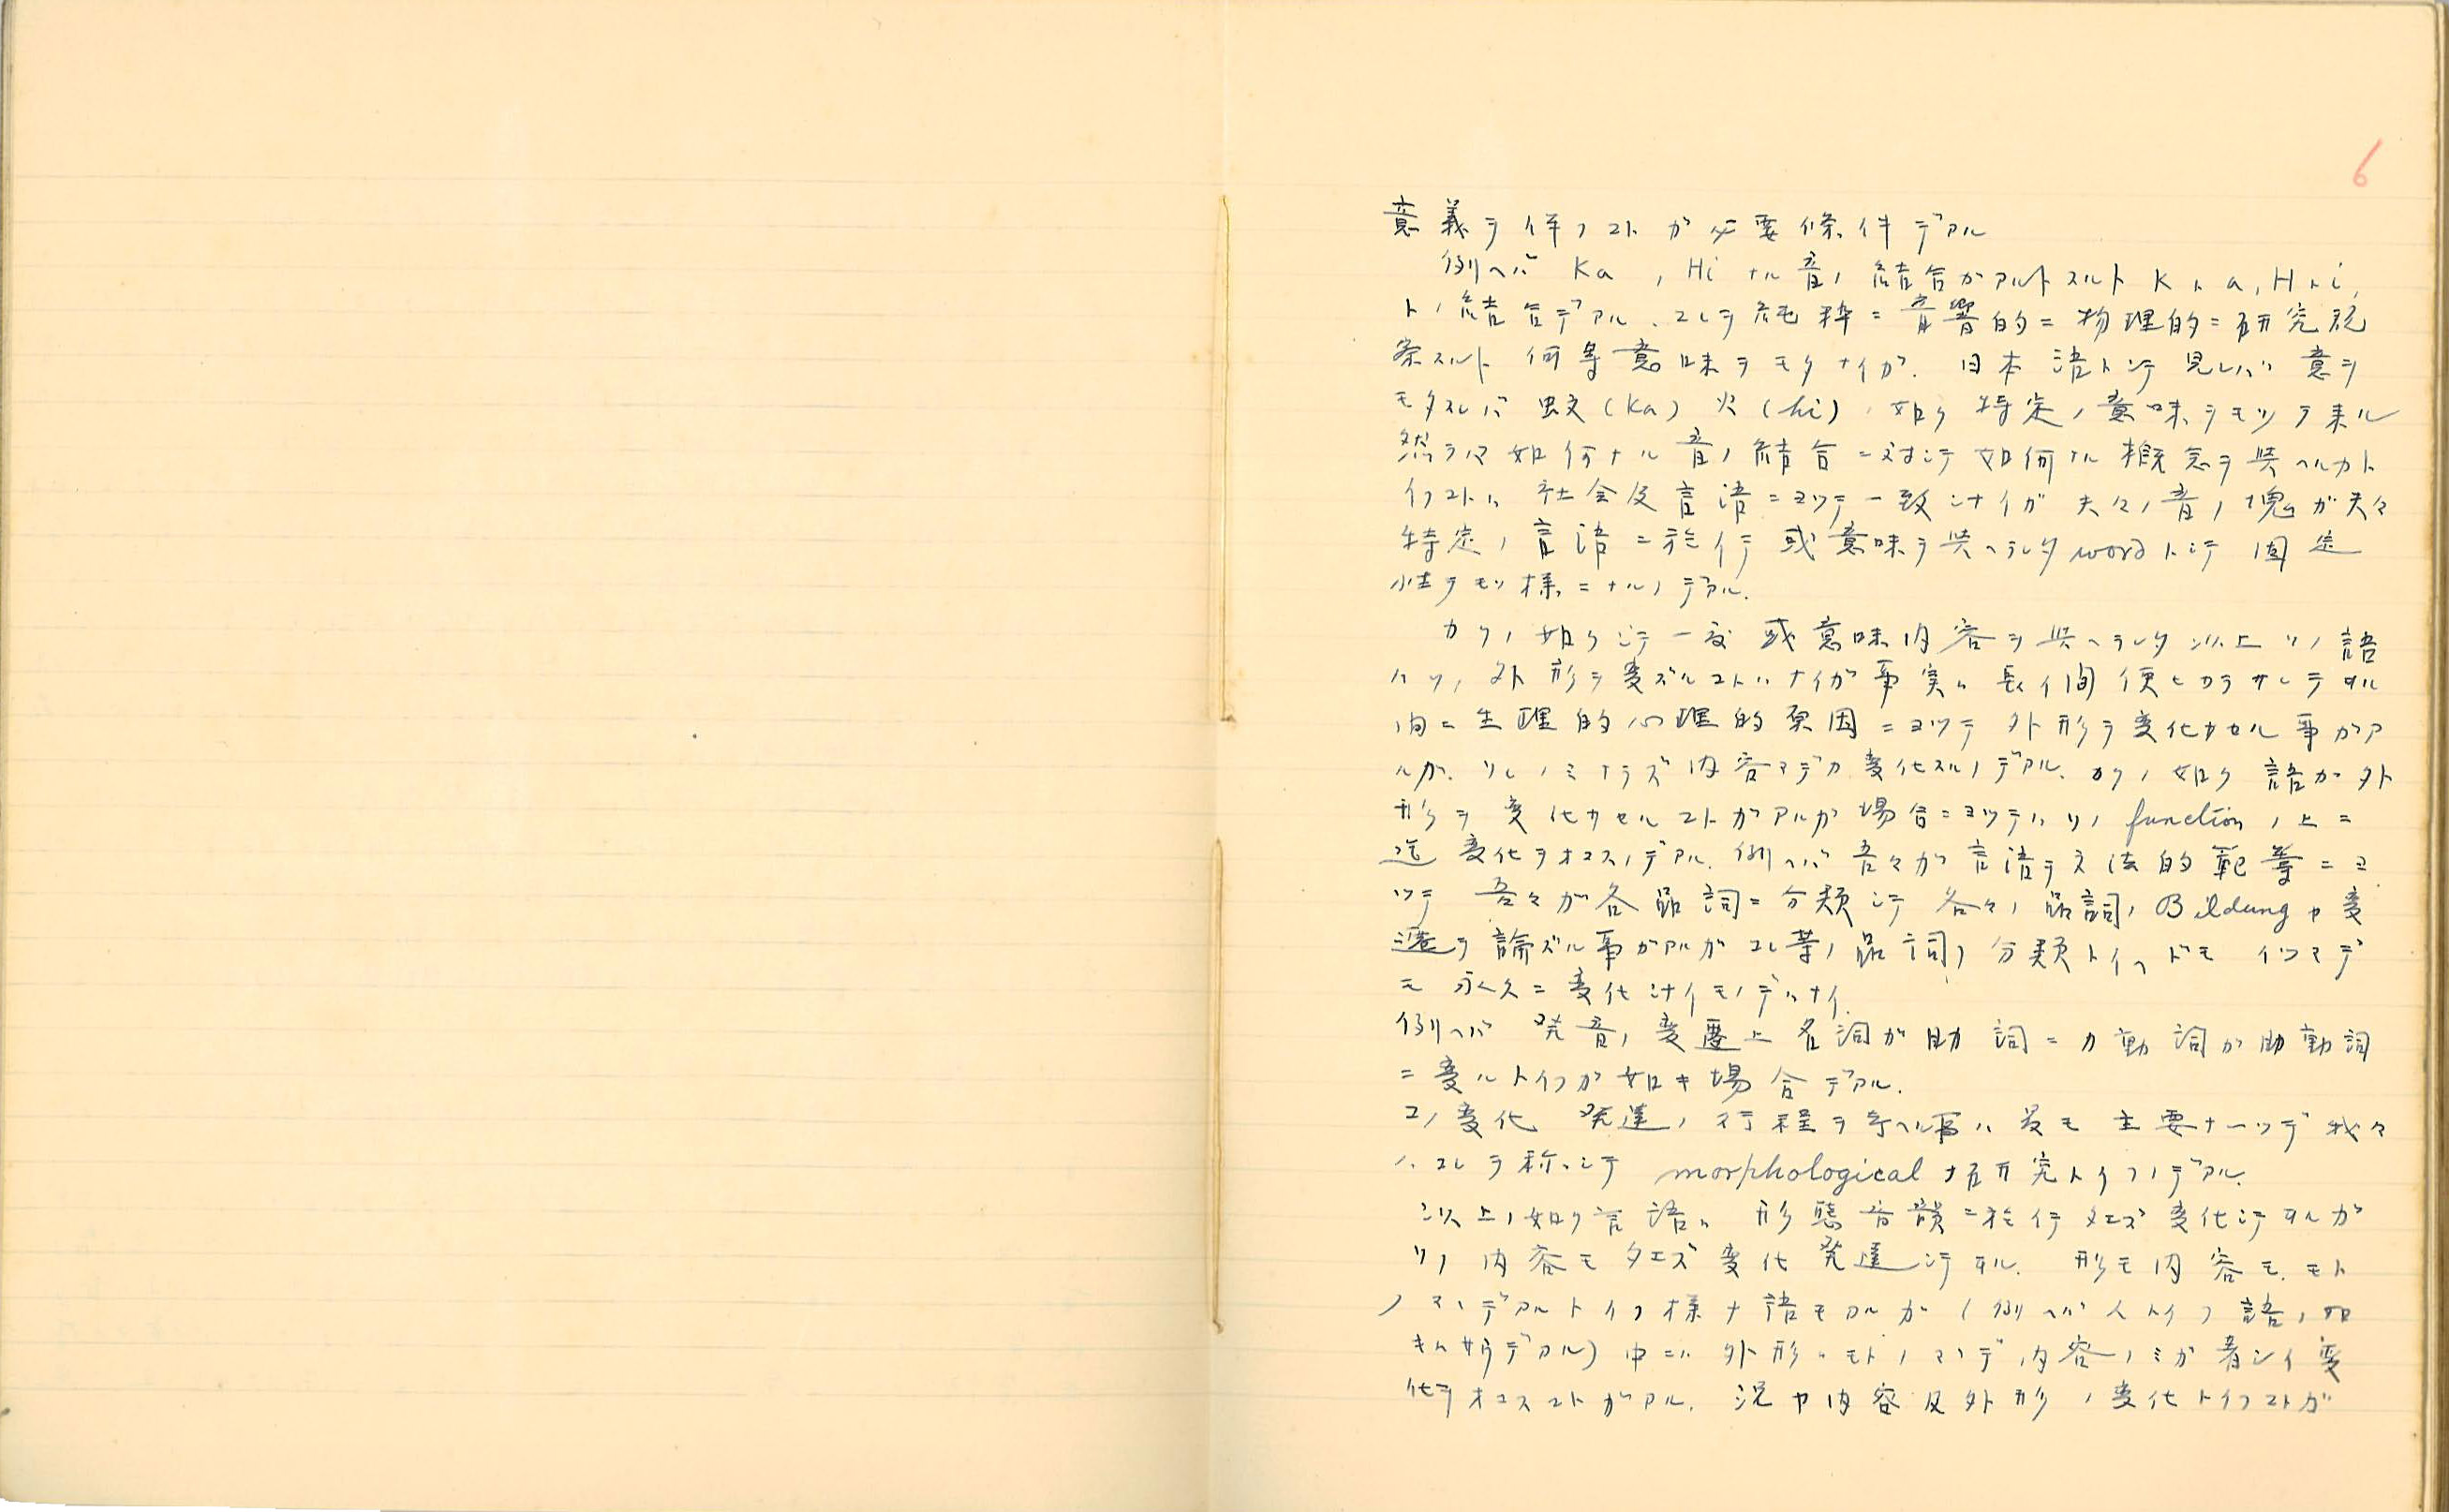 6
意義ヲ伴フコトガ必要條件デアル
例ヘバ Ka , Hi ナル音ノ結合ガアルトスルト K ト a, H ト i,
トノ結合デアル、コレヲ純粋ニ音響的ニ物理的ニ研究観
察スルト 何等意味ヲモタナイガ、日本語トシテ見レバ 意ヲ
モタスレバ 蚊(Ka) 火(hi)ノ如ク特定ノ意味ヲモツテ来ル
然ラバ如何ナル音ノ結合ニ対シテ如何ナル概念ヲ與ヘルカト
イフコトハ 社会及言語ニヨツテ一致シナイガ夫々ノ音ノ塊ガ夫々
特定ノ言語ニ於イテ或意味ヲ與ヘラレタ word トシテ固定
性ヲモツ様ニナルノデアル.
カクノ如クシテ一度或意味内容ヲ與ヘラレタ以上ソノ語
ハソノ外形ヲ変ズルコトハナイガ事実ハ長イ間使ヒカラサレテヰル
内ニ生理的心理的原因ニヨツテ外形ヲ変化サセル事ガア
ルガ、ソレノミナラズ内容マデガ変化スルノデアル. カクノ如ク語ガ外
形ヲ変化サセルコトガアルガ場合ニヨツテハソノ function ノ上ニ
迄変化ヲオコスノデアル. 例ヘバ吾々ガ言語ヲ文法的範疇ニヨ
ツテ 吾々ガ各品詞ニ分類シテ各々ノ品詞ノ Bildung ヤ変
遷ヲ論ズル事ガアルガコレ等ノ品詞ノ分類トイヘドモ イツマデ
モ永久ニ変化シナイモノデハナイ.
例ヘバ 発音ノ変遷上名詞ガ助詞ニカ動詞ガ助動詞
ニ変ルトイフガ如キ場合デアル.
コノ変化 発達ノ行程ヲ考ヘル事ハ最モ主要ナ一ツデ我々
ハコレヲ称シテ morphological ナ研究トイフノデアル.
以上ノ如ク言語ハ 形態音韻ニ於イテタエズ変化シテヰルガ
ソノ内容モタエズ変化発達シテヰル. 形モ内容モ、モト
ノマヽデアルトイフ様ナ語モアルガ (例ヘバ人トイフ語ノ如
キハサウデアル) 中ニハ外形ハモトノマヽデ内容ノミガ著シイ変
化ヲオコスコトガアル. 況ヤ内容及外形ノ変化トイフコトガ